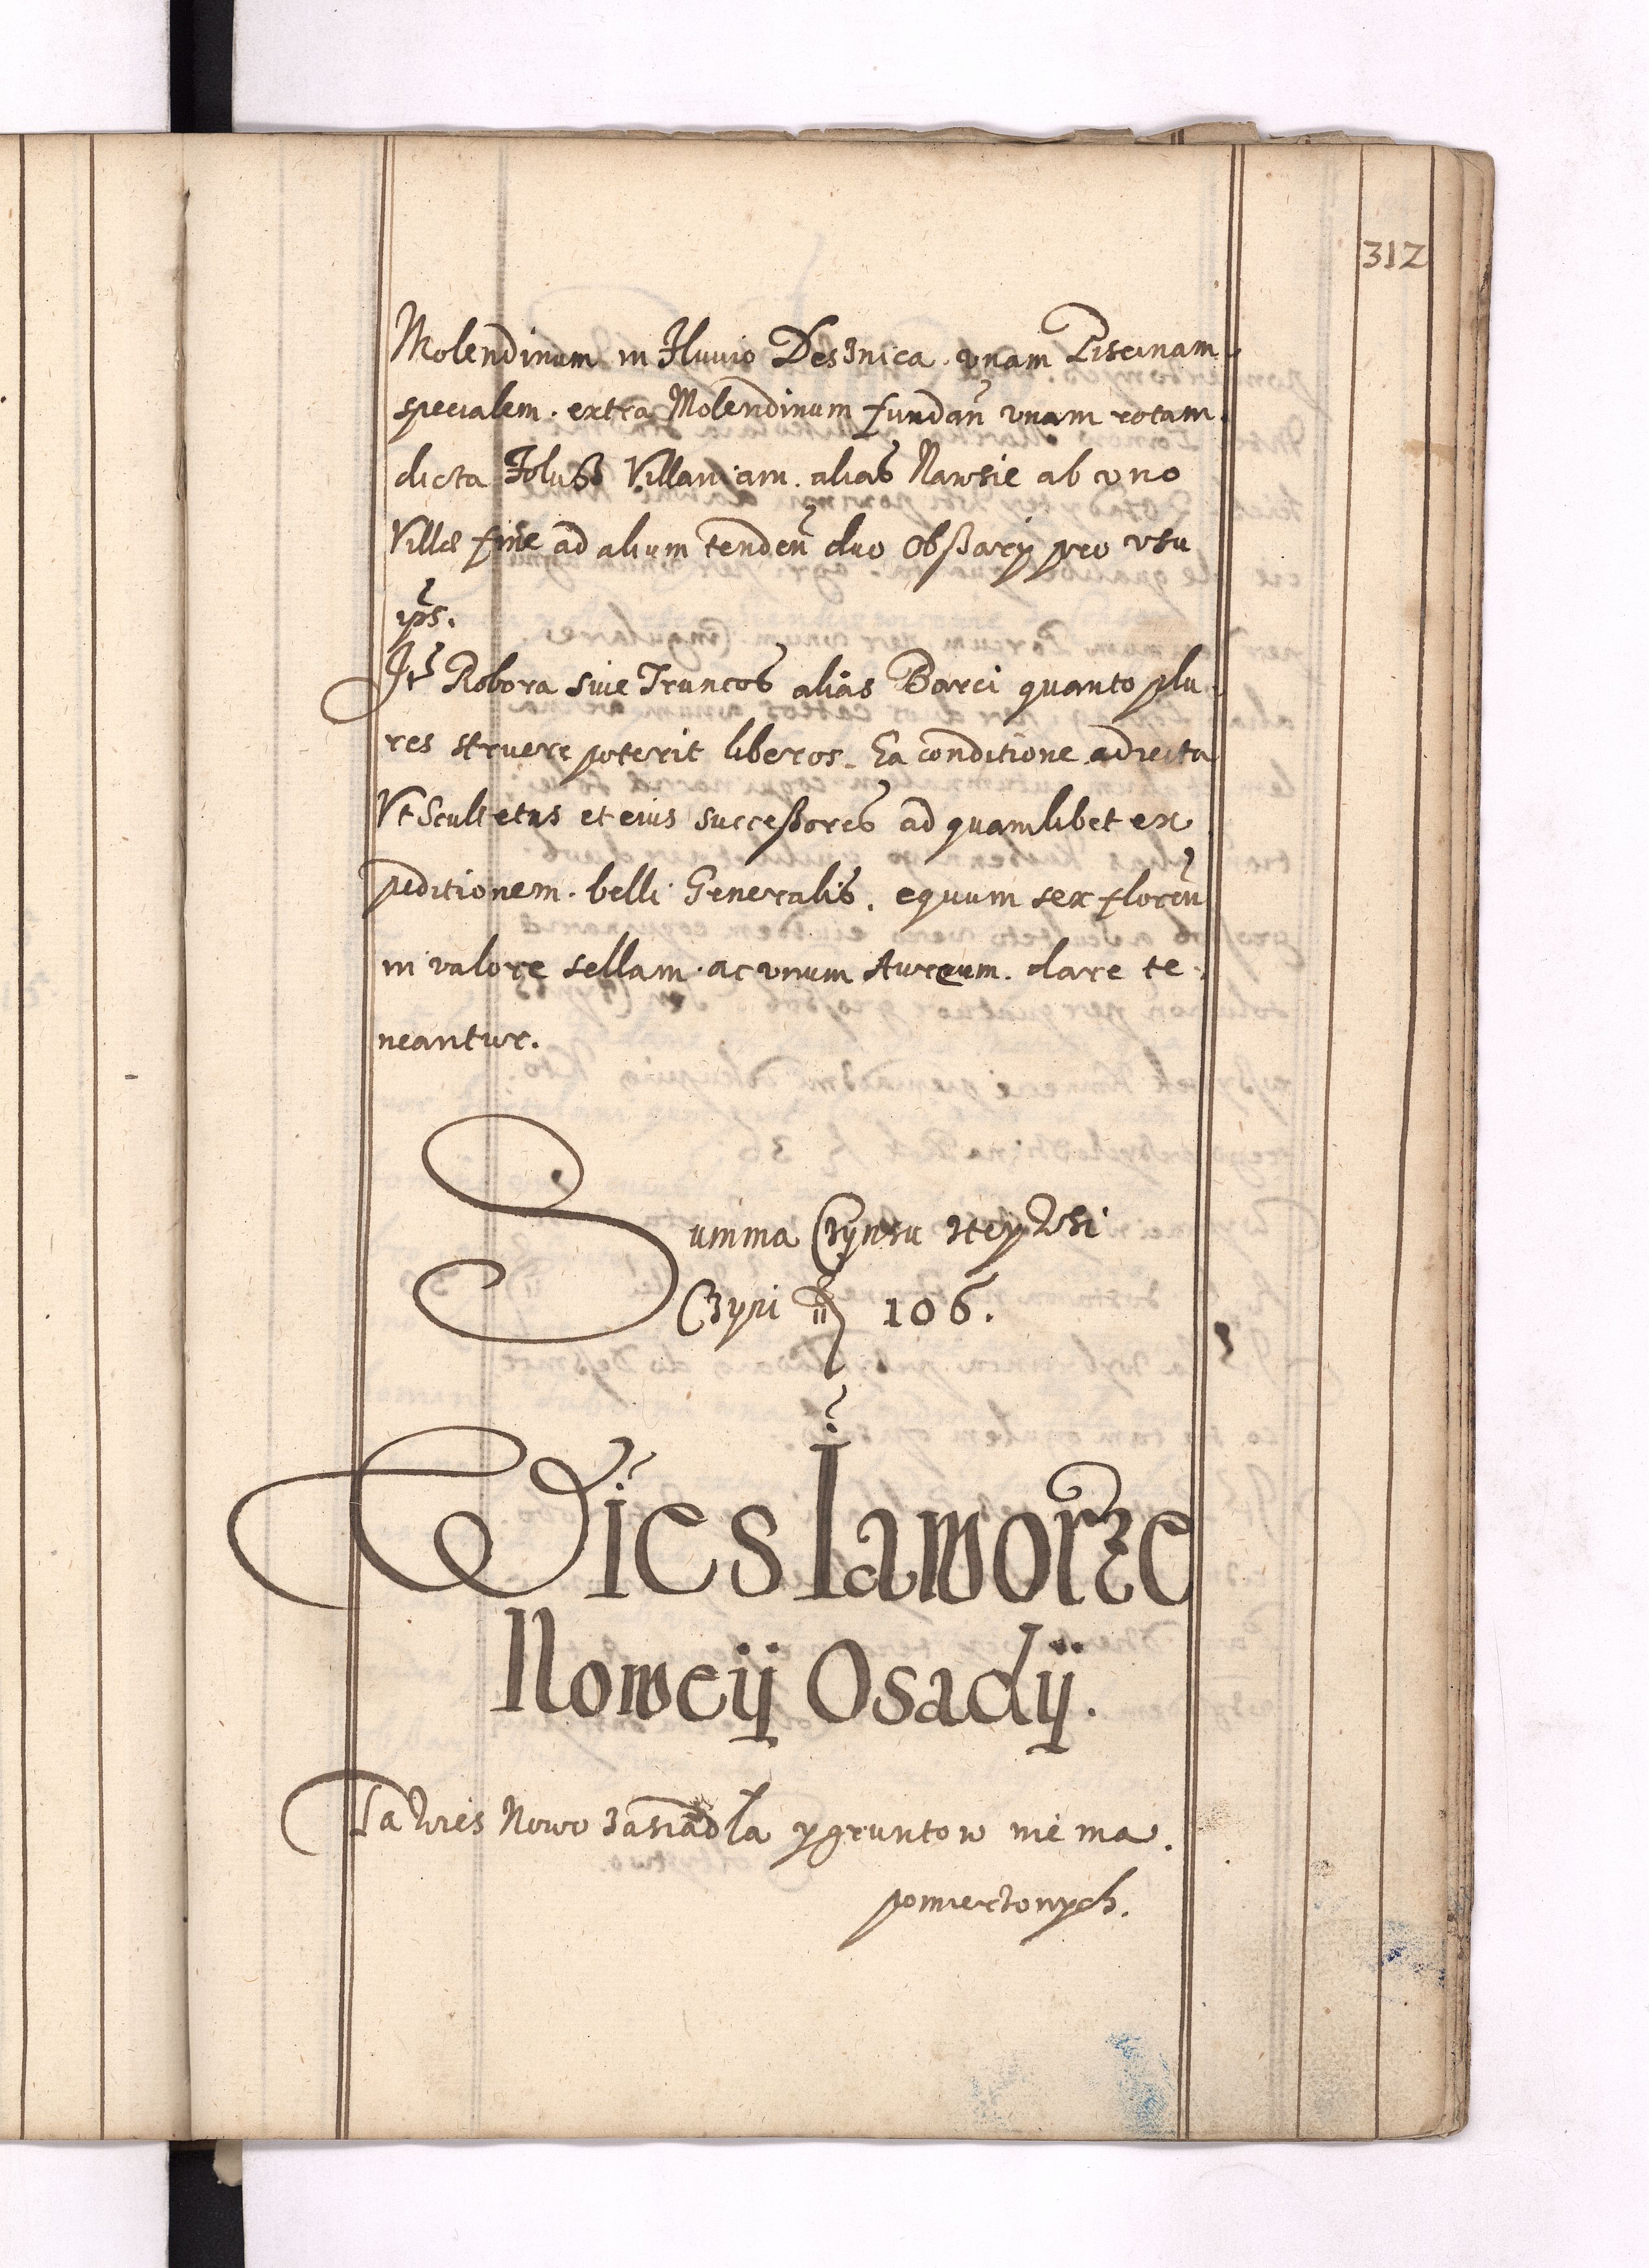 312
Molendinum in Fluvio Des3nica. vnam Piscinam
specialem. extra Molendinum fundan̄ vnam rotam.
dicta Folusz Villaniam. alias Nawsie ab vno
Villæ fine ad alium tenden̄ duo Obszary pro vsu
ip̄s.
It̄ Robora siue Truncos alias Barci quanto plu
res struere poterit liberos. Ea conditione adiecta
Vt Scultetus et eius successores ad quamlibet ex
peditionem. belli Generalis. equum sex floren̄
in valore sellam. ac vnum Aureum. dare te
neantur.
Summa Czynszu 3tey Wsi
Czyni 106.
Wies Iaworze
Noweÿ Osadÿ.
Ta Wies Nowo 3asiadła y gruntow niema.
pomierzonych.